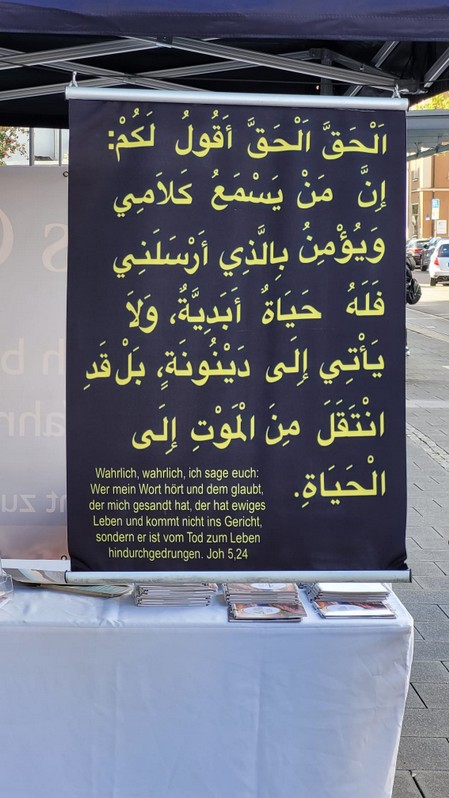 اَلْحَقَّ اَلْحَقَّ أَقُولُ لَكُمْ:
إِنَّ مَنْ يَسْمَعُ كَلَامِي
وَيُؤْمِنُ بِالَّذِي أَرْسَلَنِي
فَلَهُ حَيَاةٌ أَبَدِيَّةٌ، وَلَا
يَأْتِي إِلَى دَيْنُونَةٍ، بَلْ قَدِ
انْتَقَلَ مِنَ الْمَوْتِ إِلَى
الْحَيَاةِ.
Wahrlich, wahrlich, ich sage euch:
Wer mein Wort hört und dem glaubt,
der mich gesandt hat, der hat ewiges
Leben und kommt nicht ins Gericht,
sondern er ist vom Tod zum Leben
hindurchgedrungen. Joh 5,24